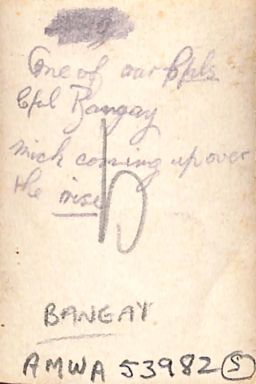 One of our Cpls
Cpl Bangay
mick coming up over
the rise
b
BANGAY
AMWA 53982 S